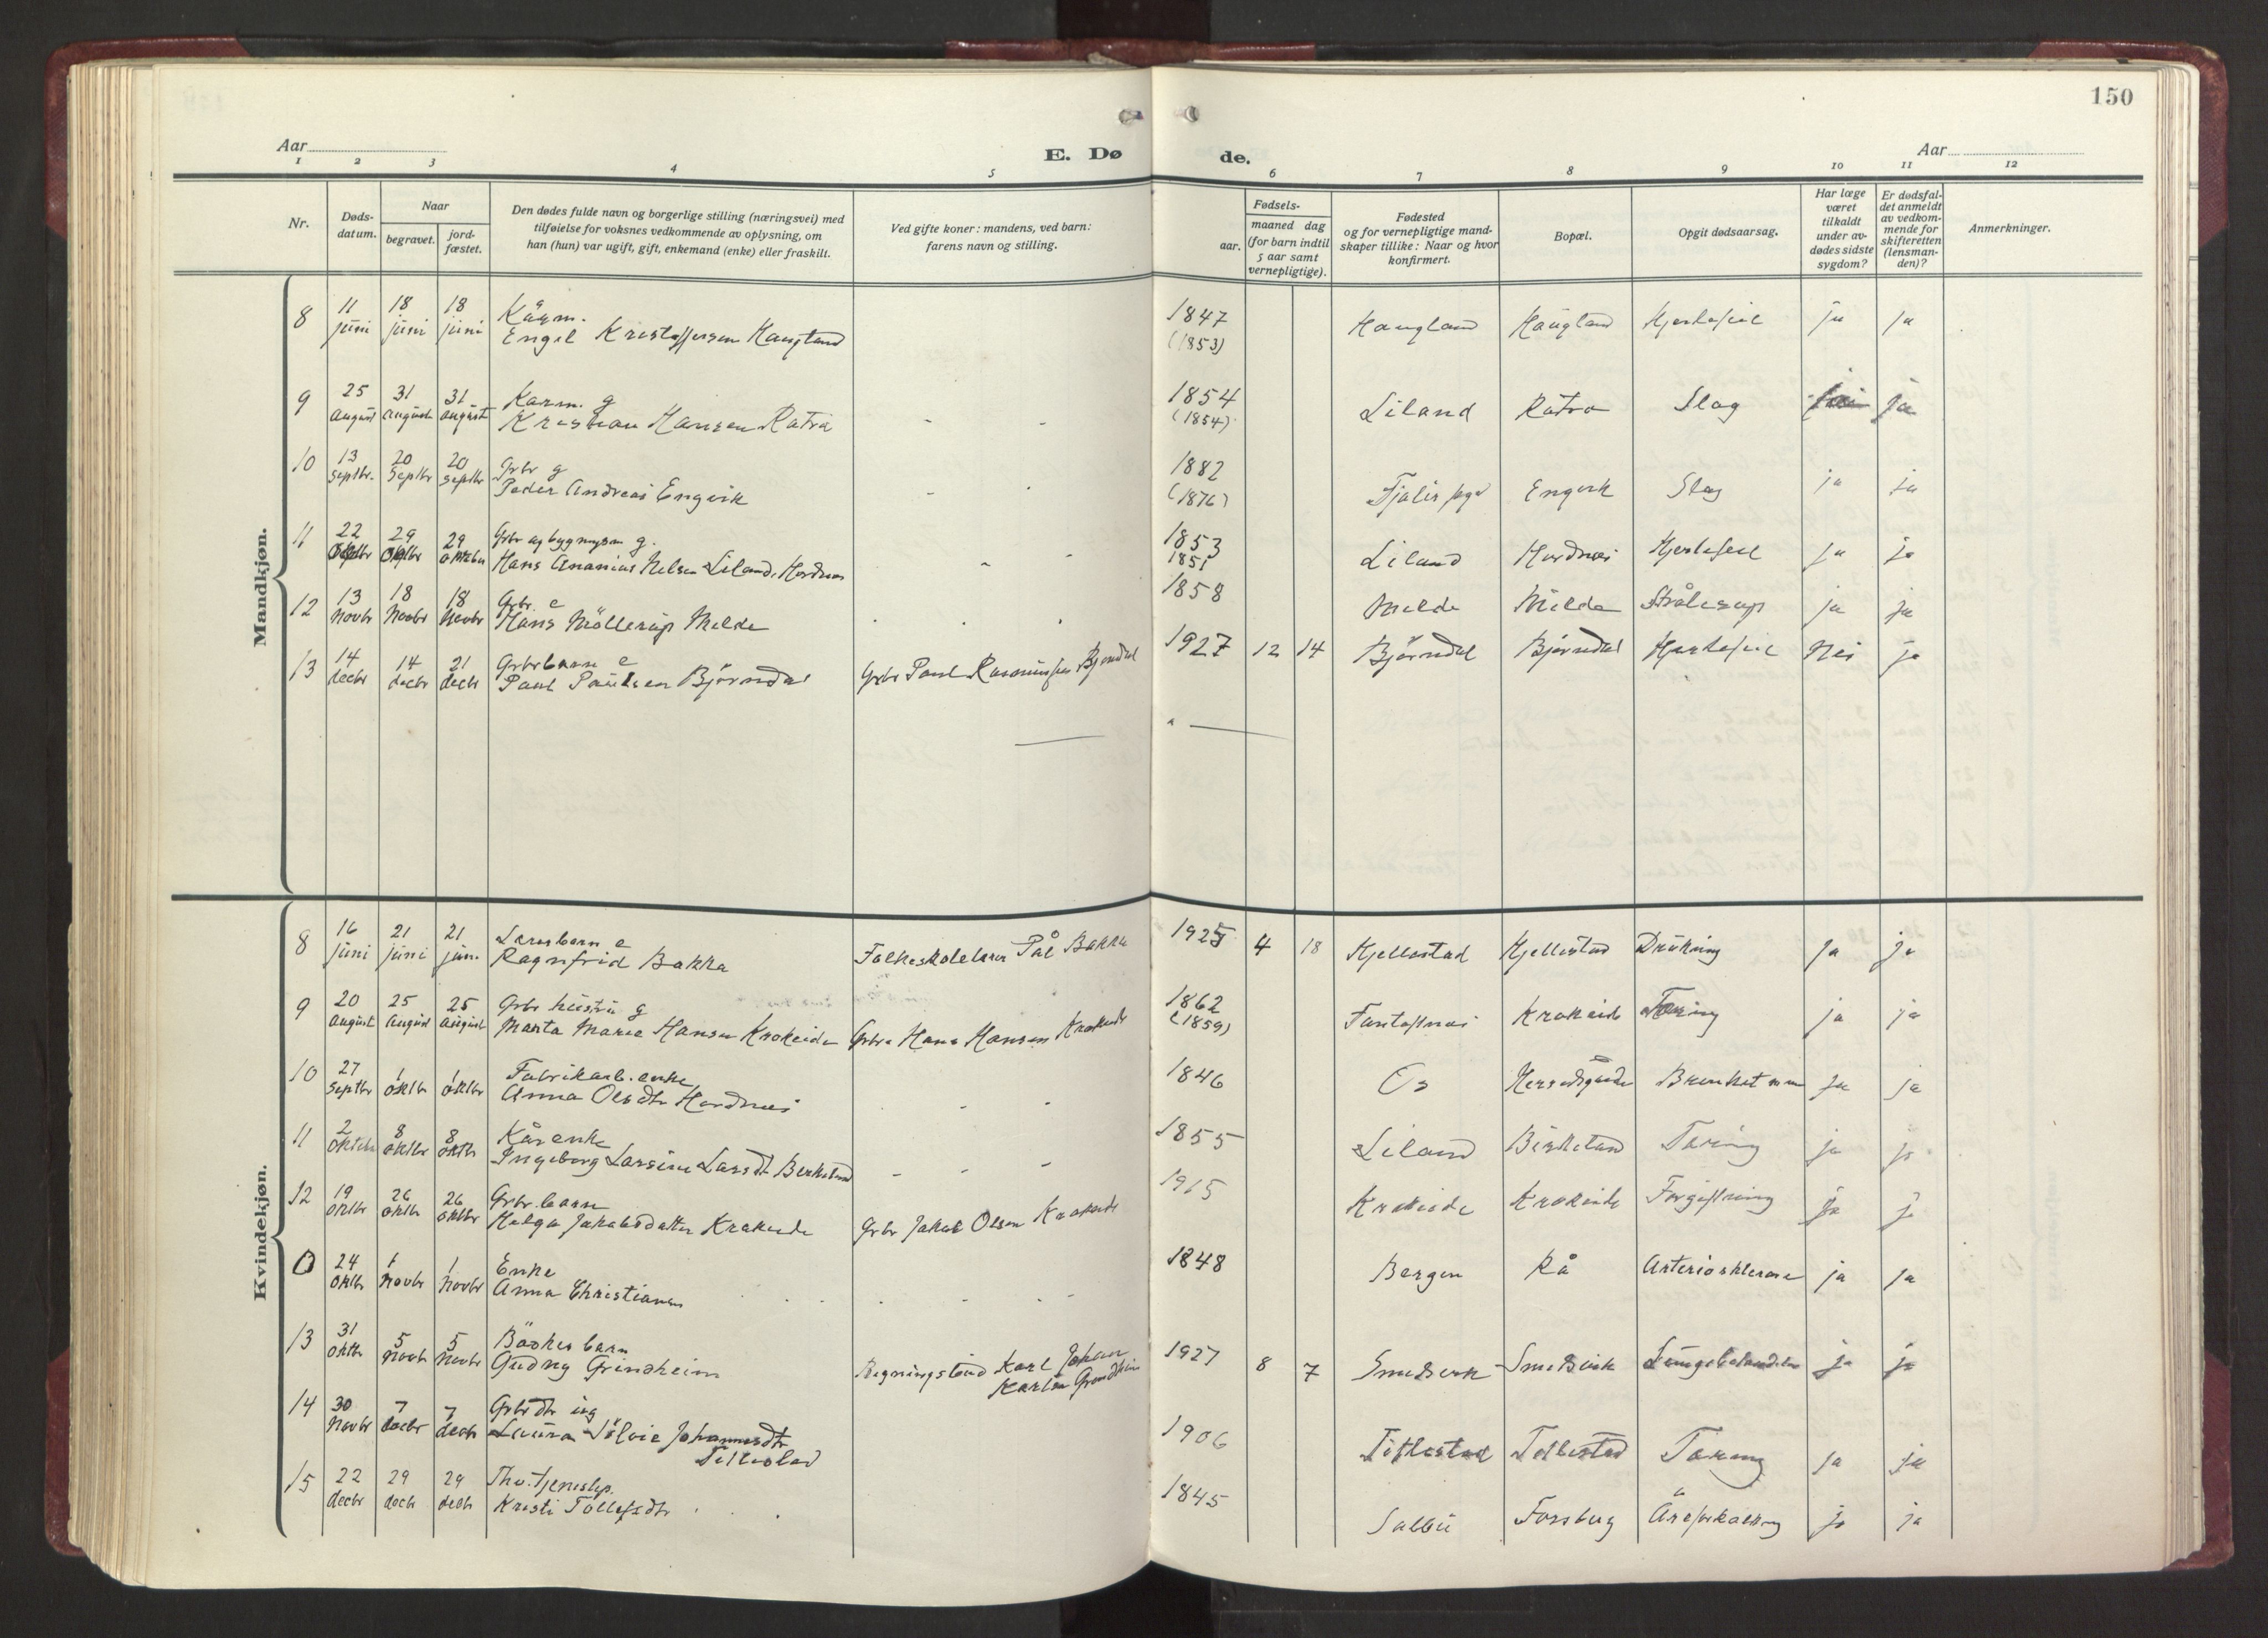 150
Aar
E. Dø de.
Aar
1 2 3 4 5 6 7 8 9 10 11 12
Nr.
Døds-
datum.
Naar
begravet.
jord-
fæstet.
Den dødes fulde navn og borgerlige stilling (næringsvei) med
tilføielse for voksnes vedkommende av oplysning, om
han (hun) var ugift, gift, enkemand (enke) eller fraskilt.
Ved gifte koner: mandens, ved barn:
farens navn og stilling.
Fødsels-
aar.
maaned dag
(for barn indtil
5 aar samt
vernepligtige).
Fødested
og for vernepligtige mand-
skaper tillike: Naar og hvor
konfirmert.
Bopæl.
Opgit dødsaarsag.
Har læge
været
tilkaldt
under av-
dødes sidste
sygdom?
Er dødsfal-
det anmeldt
av vedkom-
mende for
skifteretten
(lensman-
den)?
Anmerkninger.
Mandkjøn.
8 11 18 18 1847 Haugland Haugland ja ja
juni juni juni Engel Kristoffersen Haugland (1853)
9 25 31 31 Kårm. g 1854 Liland Råtra Slag ja
august august august Kristian Hansen Råtra - - (1854)
10 13 20 20 Grbr g 1882 Engevik Slag ja ja
septbr. septbr septbr Peder Andreas Engevik - - (1876)
11 22 29 29 Grbr og bygmesm g. 1853 Liland Hordnes Hjertefeil ja ja
oktbr oktbr oktober Hans Ananias Nilsen Liland, Hordnes - - 1851
12 13 18 18 Grbr. e 1858 Milde Milde Strålesop ja ja
Novbr Novbr Novbr Hans Möllerup Milde
13 14 14 21 Grbrbarn e 1927 12 14 Björndal Björndal Hjertefeil Nei ja
decbr decbr decbr Paul Paulsen Björndal Grbr Paul Rasmussen Björndal
Kvindekjøn.
8 16 21 21 Lærerbarn e 1925 4 18 Hjellestad Hjellestad Drukning ja ja
juni juni juni Ragnfrid Bakka Folkeskolelærer Pål Bakka
9 20 25 25 Grbr hustru g 1862 Fantoftnes Krokeide Tæring ja ja
august august august Marta Marie Hansen Krokeide Grbr Hans Hansen Krokeide (1859)
10 27 1 1 Fabrikarb. enke 1846 Os ja ja
septbr oktbr oktbr Anna Olsdtr Hordnes - -
11 2 8 8 Kårenke 1855 Liland Birkeland Tæring ja ja
oktober oktbr oktbr Ingeborg Larsine Larsdt Birkeland - - -
12 19 26 26 Grbr. barn 1915 Krokeide Krokeide Forgiftning ja ja
oktbr oktbr oktbr Helga Jakobsdatter Krokeide Grbr Jakob Olsen Krokeide
0 24 1 1 Enke 1848 Bergen Rå Arteriosklerose ja ja
oktbr Novbr Novbr Anna Christiansen
13 31 5 5 barn 1927 8 7 Smedvik Smedvik Lungebetændelse ja ja
oktbr Novbr Novbr Gudny Grindheim Karl Johan
14 30 7 7 Grbrdtr ug 1906 Titlestad Titlestad Tæring ja ja
Novbr decbr decbr Laura Sölvie Johannesdtr
Titlestad
15 22 29 29 Thv. 1845 Salbu Forsbug Åreforkalkning ja ja
decbr decbr decbr Kristi Tollefsdtr